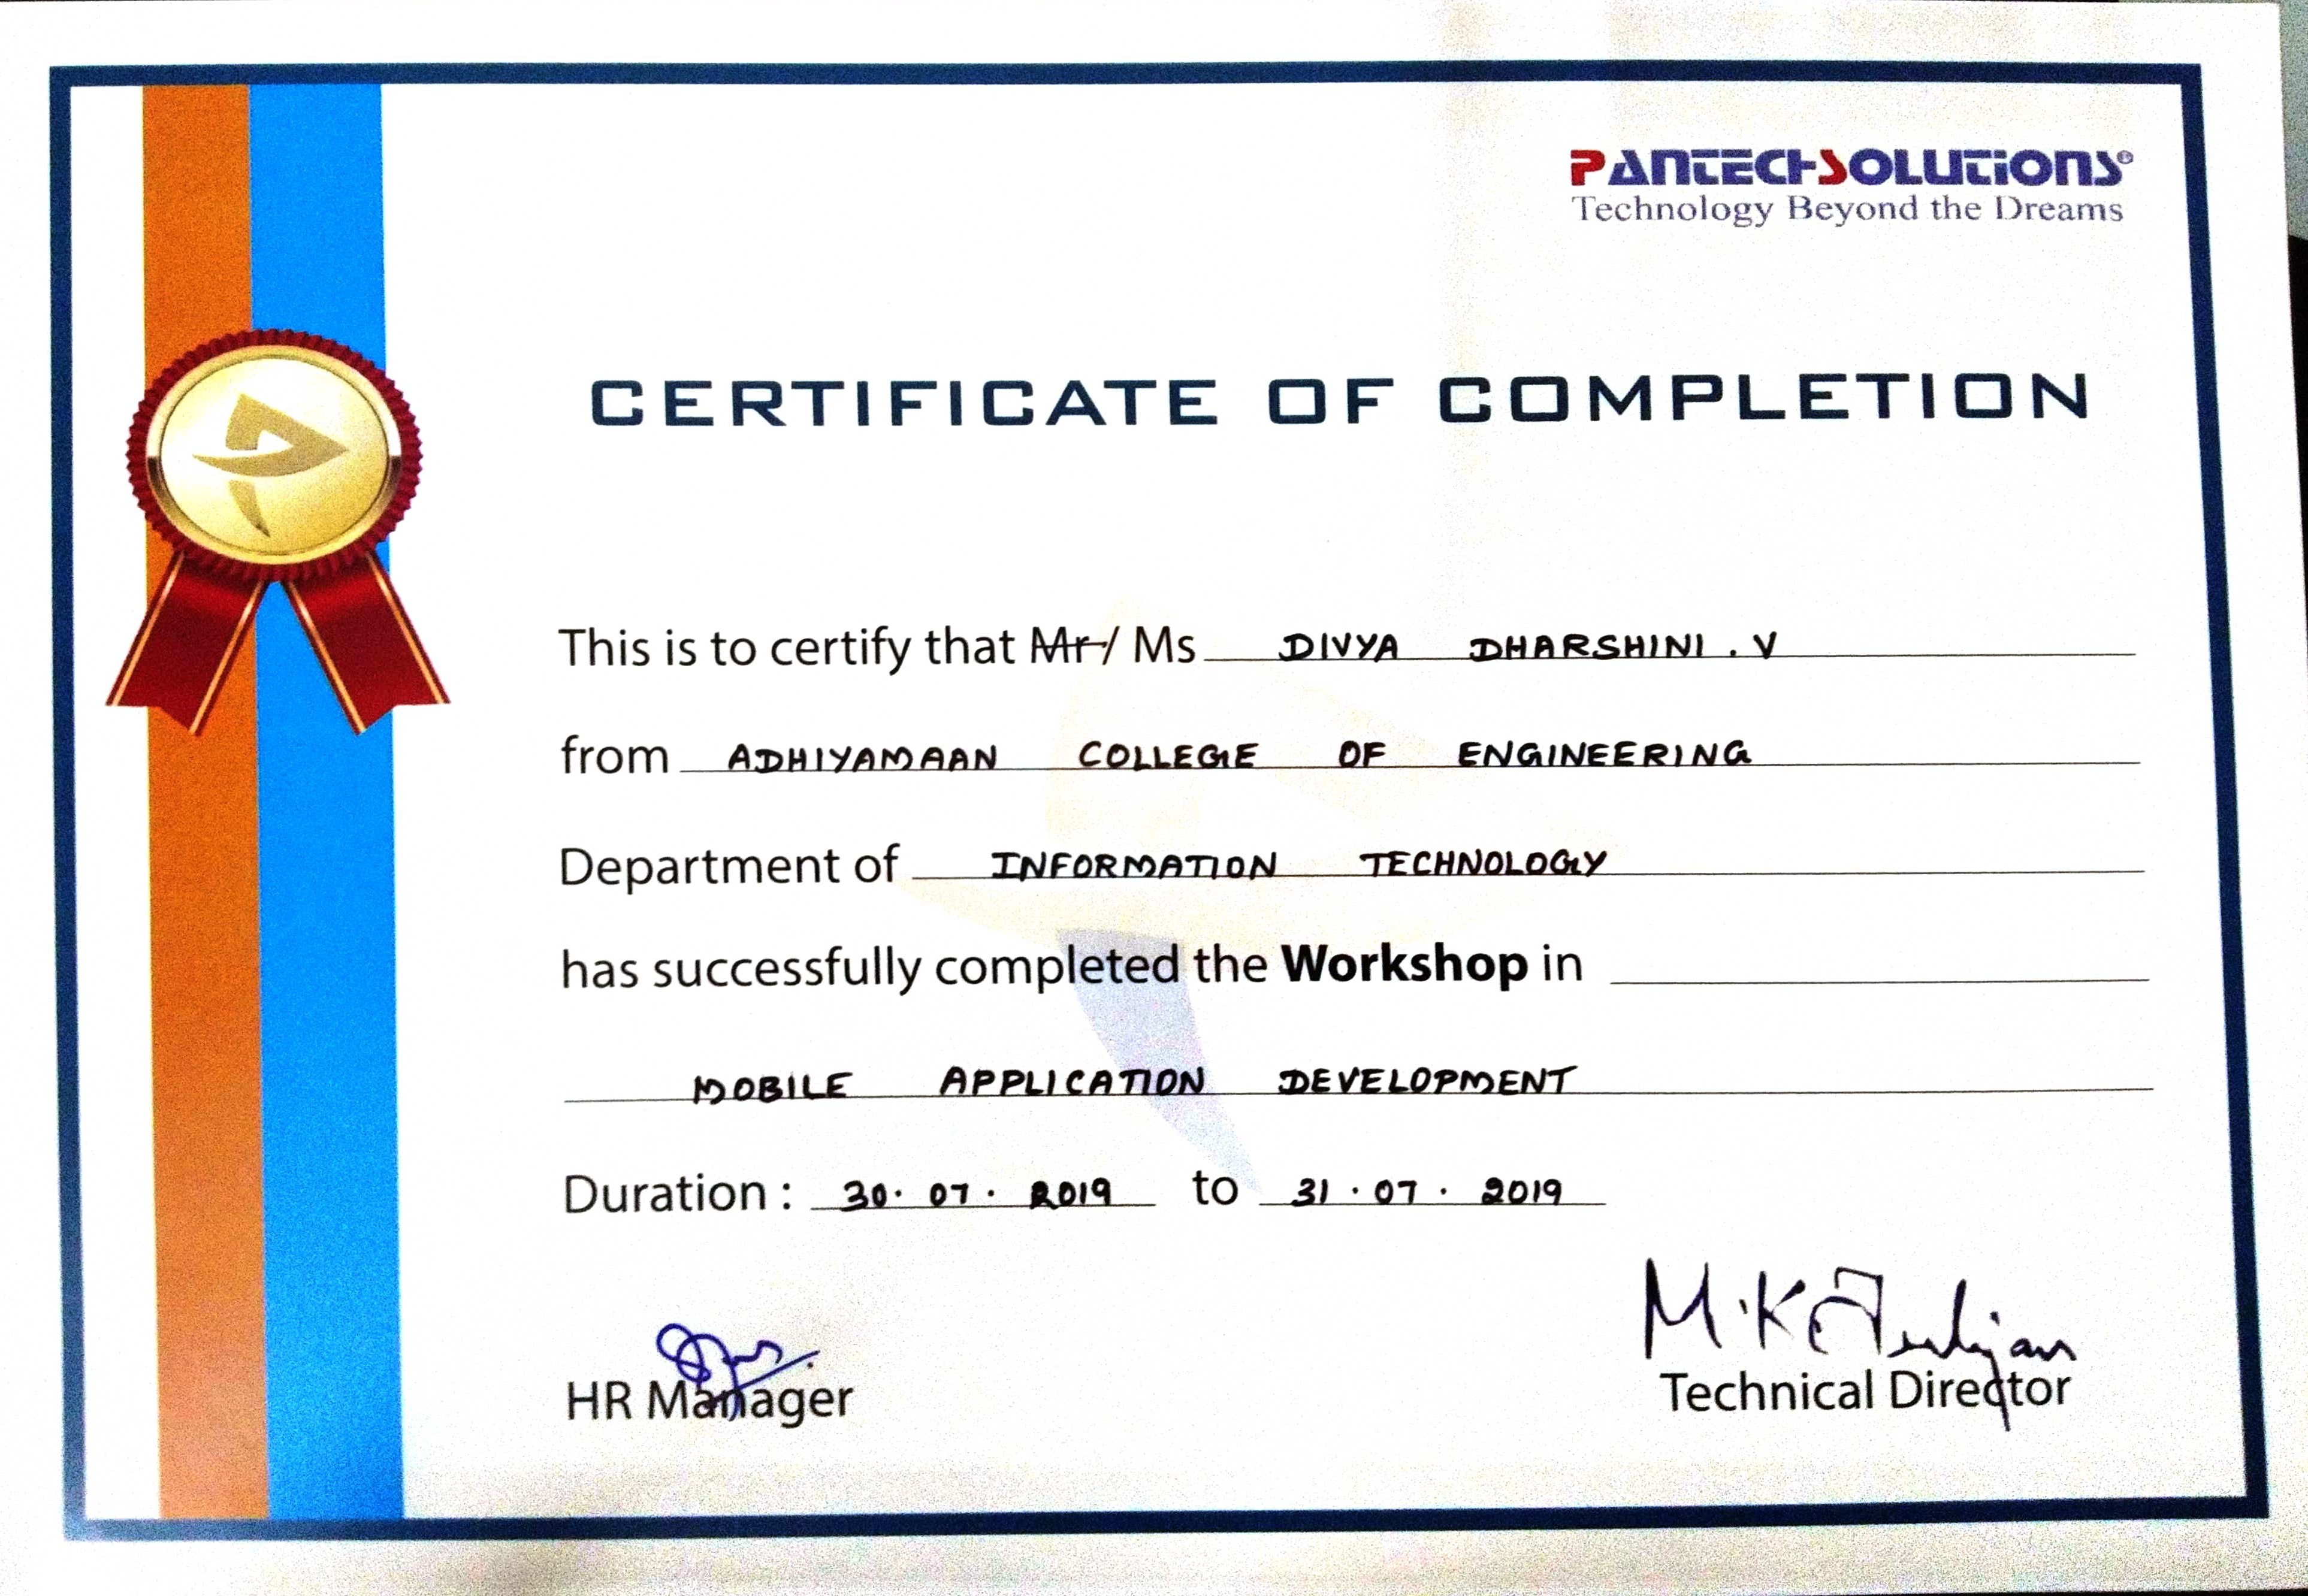 PANTECHSOLUTIONS®
Technology Beyond the Dreams
CERTIFICATE OF COMPLETION
This is to certify that Mr/ Ms DIVYA DHARSHINI . V
from ADHIYAMAAN COLLEGE OF ENGINEERING
Department of INFORMATION TECHNOLOGY
has successfully completed the Workshop in
MOBILE APPLICATION DEVELOPMENT
Duration : 30. 07 . 2019 to 31 . 07 . 2019
HR Manager
Technical Director